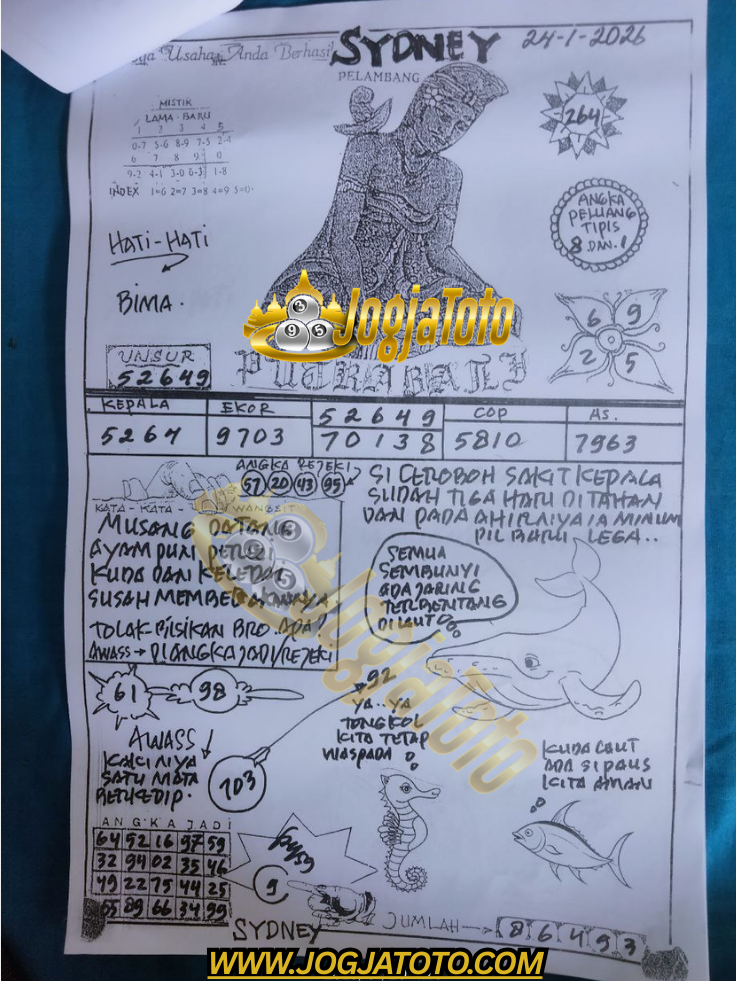 Usaha Anda Berhasil
SYDNEY
24-1-2026
PELAMBANG
MISTIK
LAMA - BARU
1 2 3 4 5
0-7 5-6 8-9 7-5 2-4
6 7 8 9 0
9-2 4-1 3-0 6-3 1-8
INDEX 1=6 2=7 3=8 4=9 5=0
264
ANGKA
PELUANG
TIPIS
8 DAN 1
HATI-HATI
BIMA.
JogjaToto
8
9 5
6 9
2 5
UNSUR
52649
PUTRA BALI
KEPALA
EKOR
52649
COP
AS.
5267
9703
70138
5810
7963
ANGKA REJEKI
57 20 43 95
SI CEROBOH SAKIT KEPALA
SUDAH TIGA HARI DITAHAN
DAN PADA AHIRNIYA IA MINUM
PIL BARU.. LEGA..
KATA - KATA - WANGSIT
MUSANG DATANG
AYAM PUN PERGI
KUDA DAN KELEDAI
SUSAH MEMBEDAKANNYA
TOLAK BISIKAN BRO. ADA?
AWASS → DIANGKA JADI/REJEKI
SEMUA
SEMBUNYI
ADA JARING
TERBENTANG
DILAUT
JogjaToto
61
98
92
YA..YA
TONGKOL
KITA TETAP
WASPADA
AWASS
KAKINIYA
SATU MATA
BERKEDIP.
103
KUDA LAUT
ADA SI PAUS
KITA AMAN
ANGKA JADI
64 52 16 97 59
32 94 02 35 46
49 22 75 44 25
55 89 66 34 99
9
SYDNEY
JUMLAH → 8 6 4 9 3
WWW.JOGJATOTO.COM